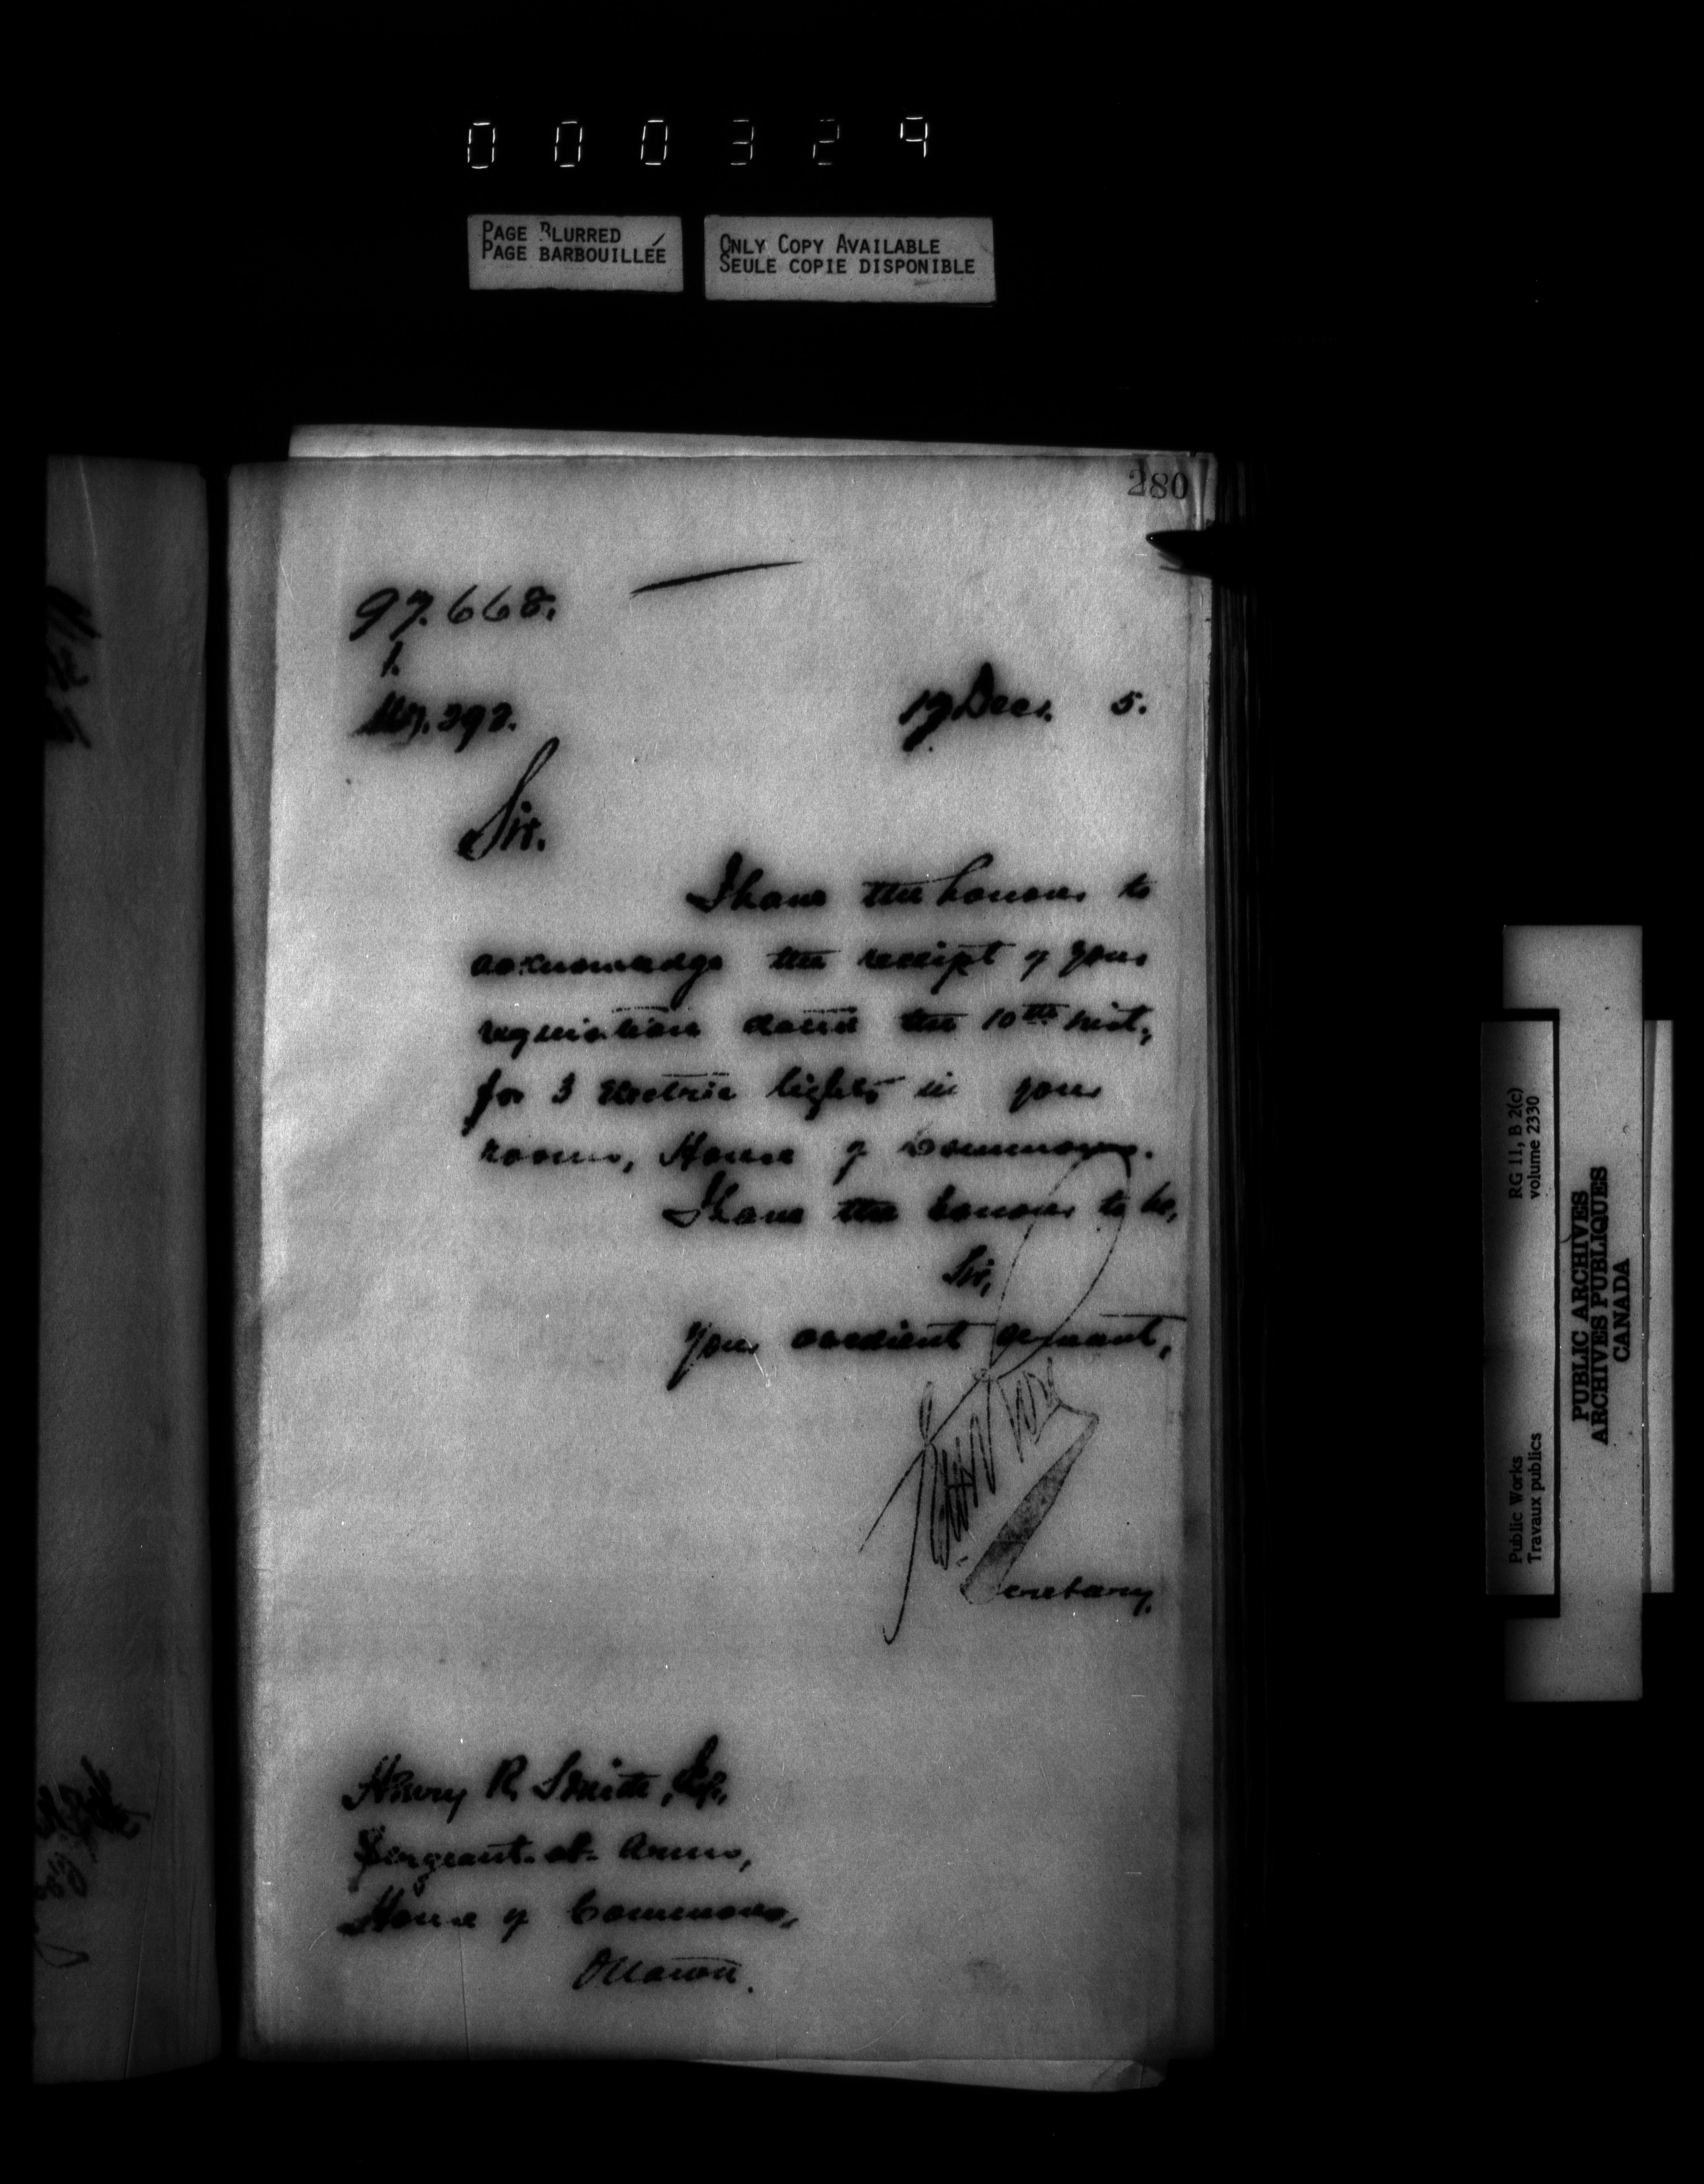 000329
PAGE BLURRED
PAGE BARBOUILLÉE
ONLY COPY AVAILABLE
SEULE COPIE DISPONIBLE
280
97.668.
1.
17 Dec. 5.
Sir.
I have the honour to
acknowledge the receipt of your
requisition dated the 10th inst,
for 3 Electric lights in your
rooms, House of Commons.
I have the honour to be,
Sir,
Your obedient servant,
Secretary.
Henry R. Smith, Esq.,
Sergeant-at-Arms,
House of Commons,
Ottawa.
RG 11, B 2(c)
volume 2330
Public Works
Travaux publics
PUBLIC ARCHIVES
ARCHIVES PUBLIQUES
CANADA